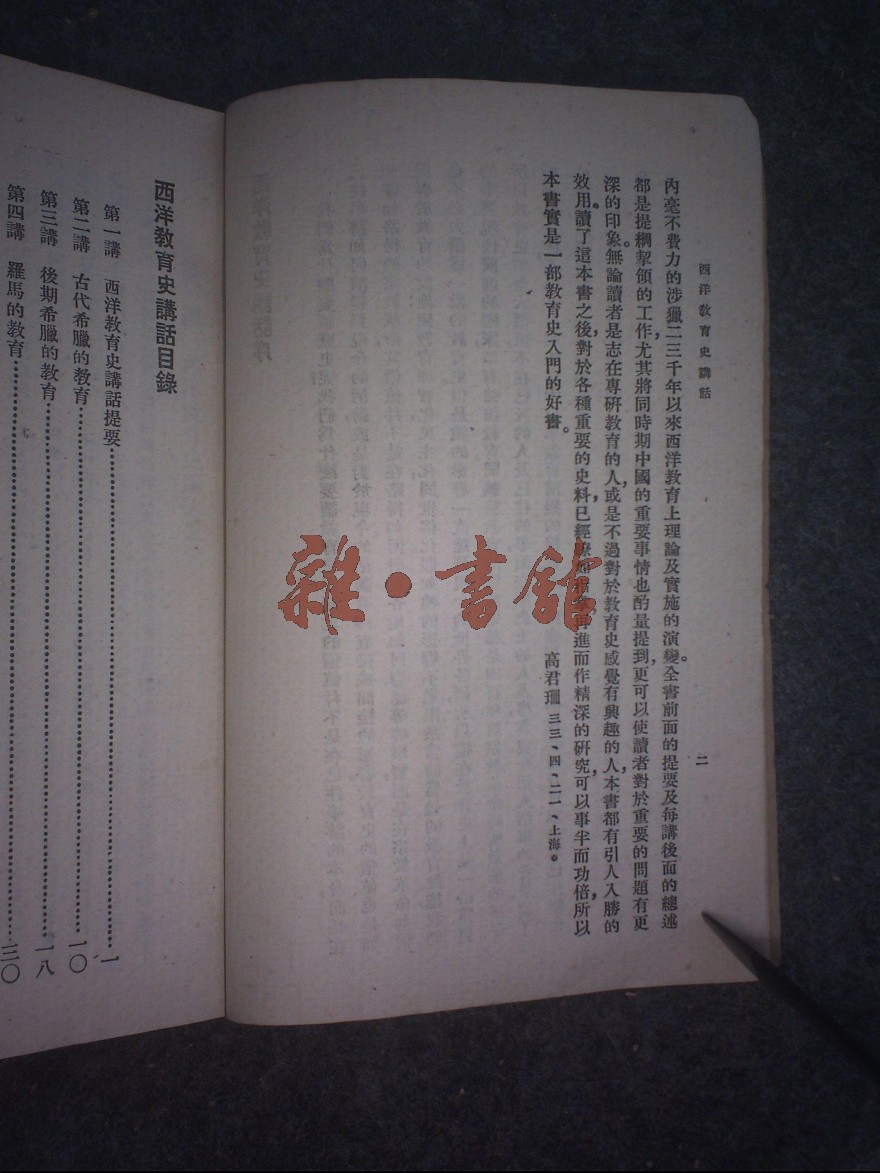 西洋教育史講話
二
內毫不費力的涉獵二三千年以來西洋教育上理論及實施的演變。全書前面的提要及每講後面的總述
都是提綱挈領的工作，尤其將同時期中國的重要事情也酌量提到，更可以使讀者對於重要的問題有更
深的印象。無論讀者是志在專研教育的人，或是不過對於教育史感覺有興趣的人，本書都有引人入勝的
效用。讀了這本書之後，對於各種重要的史料，已經瞭如指掌，再進而作精深的研究，可以事半而功倍，所以
本書實是一部教育史入門的好書。
高君珊 三三、四、二一、上海。
西洋教育史講話目錄
第一講 西洋教育史講話提要……一
第二講 古代希臘的教育……一〇
第三講 後期希臘的教育……一八
第四講 羅馬的教育……三〇
雜·書館